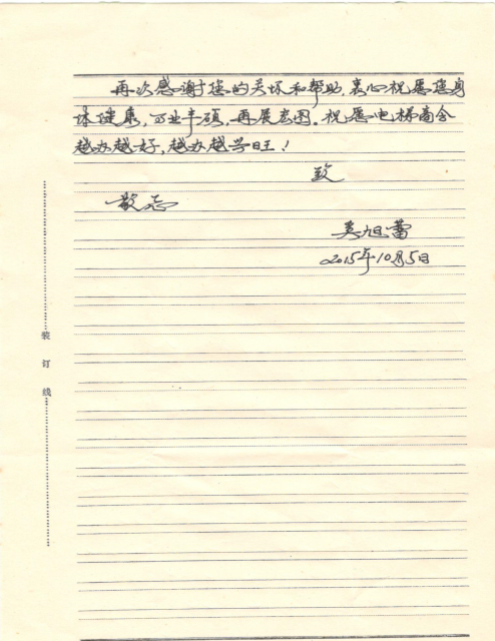 再次感谢您的关怀和帮助，衷心祝愿您身
体健康，可业丰硕，再展宏图。祝愿电梯商会
越办越好，越办越兴旺！
致
敬意
吴旭蕾
2015年10月5日
装订线